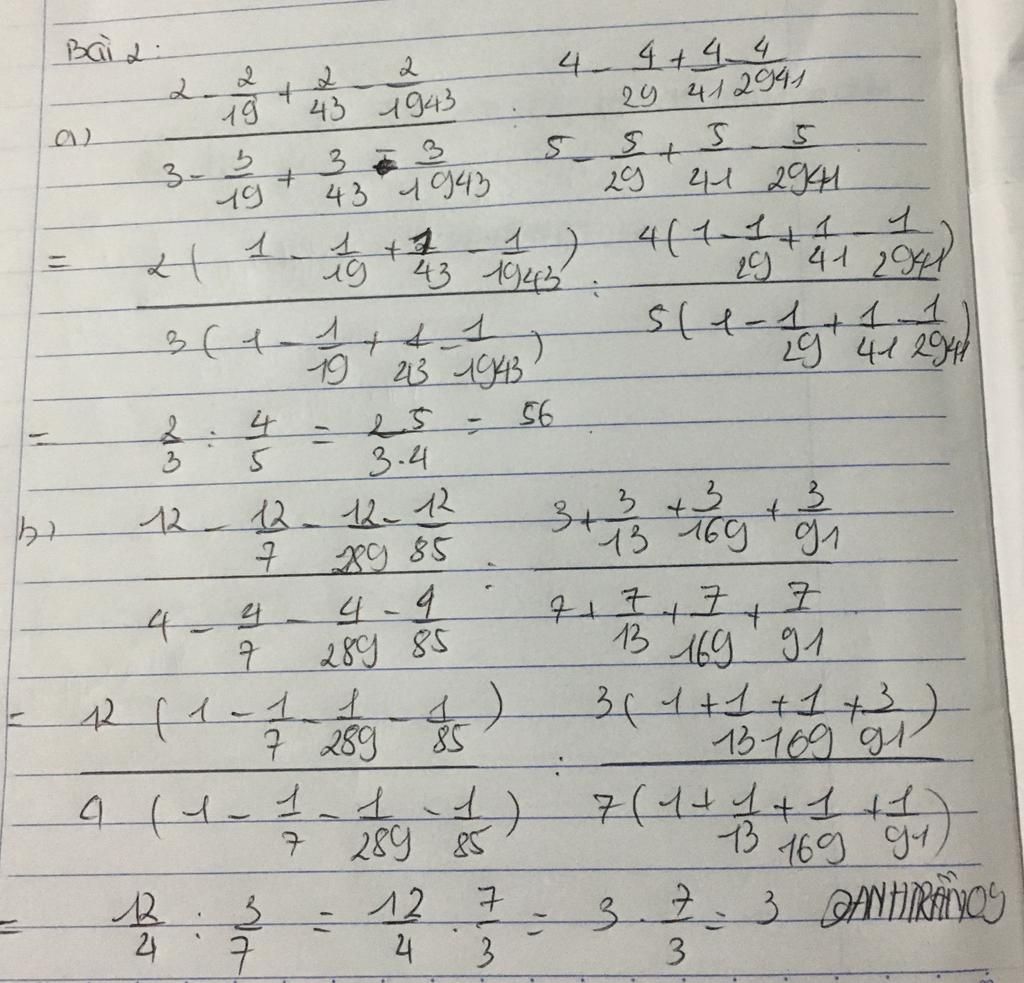 Bài 2:
a) (2 - 2/19 + 2/43 - 2/1943)/(3 - 3/19 + 3/43 - 3/1943) : (4 - 4/29 + 4/41 - 4/2941)/(5 - 5/29 + 5/41 - 5/2941)
= 2(1 - 1/19 + 1/43 - 1/1943)/3(1 - 1/19 + 1/43 - 1/1943) : 4(1 - 1/29 + 1/41 - 1/2941)/5(1 - 1/29 + 1/41 - 1/2941)
= 2/3 : 4/5 = 2.5/3.4 = 56
b) (12 - 12/7 - 12/289 - 12/85)/(4 - 4/7 - 4/289 - 4/85) : (3 + 3/13 + 3/169 + 3/91)/(7 + 7/13 + 7/169 + 7/91)
= 12(1 - 1/7 - 1/289 - 1/85)/4(1 - 1/7 - 1/289 - 1/85) : 3(1 + 1/13 + 1/169 + 3/91)/7(1 + 1/13 + 1/169 + 1/91)
= 12/4 : 3/7 = 12/4 . 7/3 = 3 . 7/3 = 3